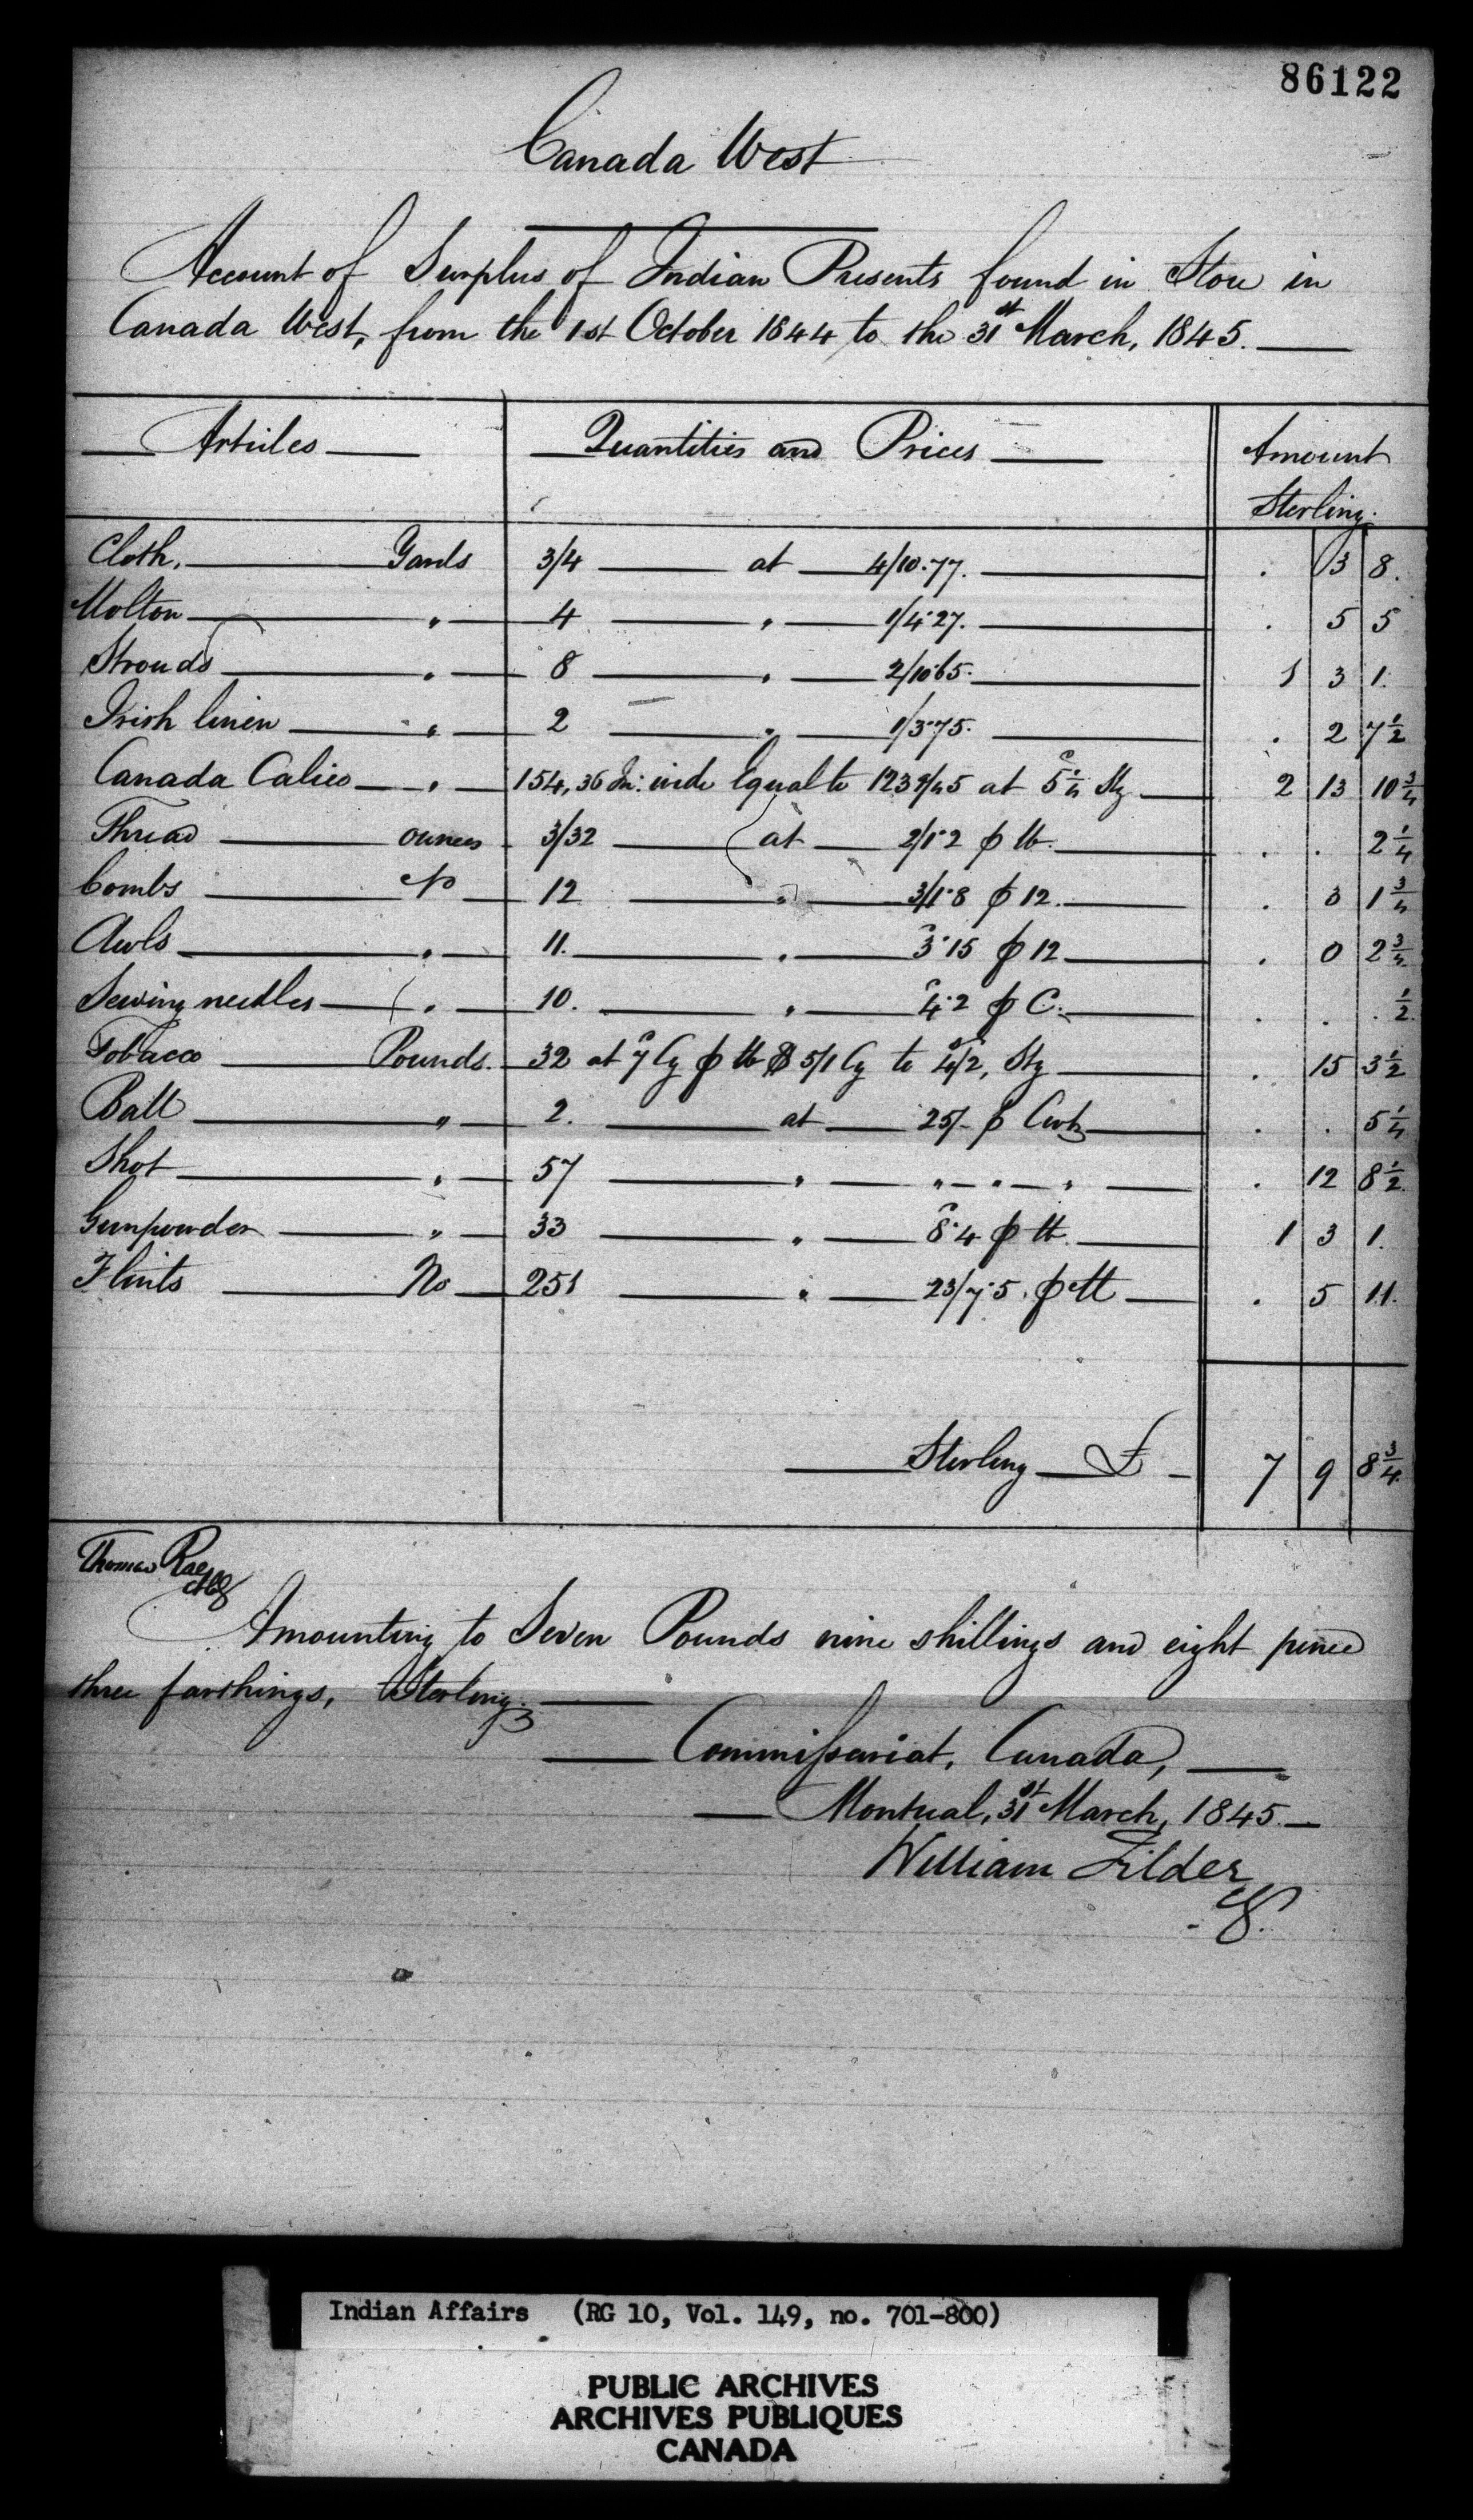 86122
Canada West
Account of Surplus of Indian Presents found in Store in
Canada West, from the 1st October 1844 to the 31st March, 1845.
Articles Quantities and Prices Amount
Sterling.
Cloth. Yards 3/4 at 4/10.77. . 3 8.
Molton " 4 " 1/4.27. . 5 5
Strouds " 8 " 2/10.65. 1 3 1.
Irish linen " 2 " 1/3.75. . 2 7 1/2
Canada Calico " 154, 36 In: wide Equal to 123 9/45 at 5 1/4 d Stg 2 13 10 3/4
Thread ounces 3/32 at 2/1.2 ₱ lb. . . 2 1/4
Combs No 12 " 3/1.8 ₱ 12. . 3 1 3/4
Awls " 11. " 3d.15 ₱ 12 . 0 2 3/4
Sewing needles " 10. " 4d.2 ₱ C. . . . 1/2
Tobacco Pounds. 32 at 7d Cy ₱ lb @ 5/1 Cy to 4s/2, Stg . 15 3 1/2
Ball " 2. at 25/- ₱ Cwt . . 5 1/4
Shot " 57 " " - " - " . 12 8 1/2
Gunpowder " 33 " 8d.4 ₱ lb. 1 3 1.
Flints No 251 " 23/7.5. ₱ M . 5 11.
Sterling £ 7 9 8 3/4
Thomas Rae
Amounting to Seven Pounds nine shillings and eight pence
three farthings, Sterling.
Commissariat, Canada,
Montreal, 31st March, 1845.
William Filder
Indian Affairs (RG 10, Vol. 149, no. 701-800)
PUBLIC ARCHIVES
ARCHIVES PUBLIQUES
CANADA